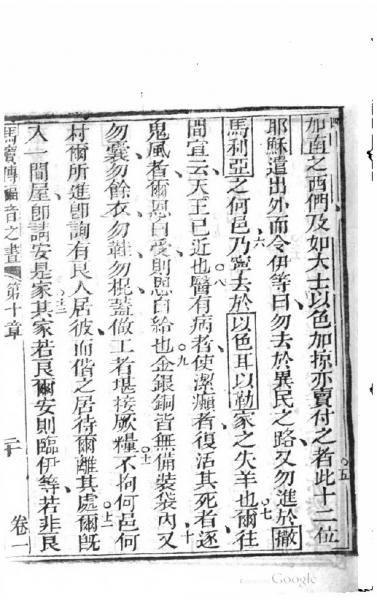 加南之西們及如大士以色加掠亦賣付之者此十二位
耶穌遣出外而令伊等曰勿去於異民之路又勿進於撒
馬利亞之何邑乃寧去於以色耳以勒家之失羊也爾往
間宜云天王已近也醫有病者使潔癩者復活其死者逐
鬼風者爾恩白受則恩白給也金銀銅皆無備裝袋內又
勿囊勿餘衣勿鞋勿棍蓋做工者堪接厥糧不拘何邑何
村爾所進即詢有良人居彼而偕之居待爾離其處爾既
入一間屋即請安是家其家若良爾安則臨伊等若非良
馬竇傳福音之書 第十章 二十 卷一
五 六 七 八 九 十 十一 十二
Google